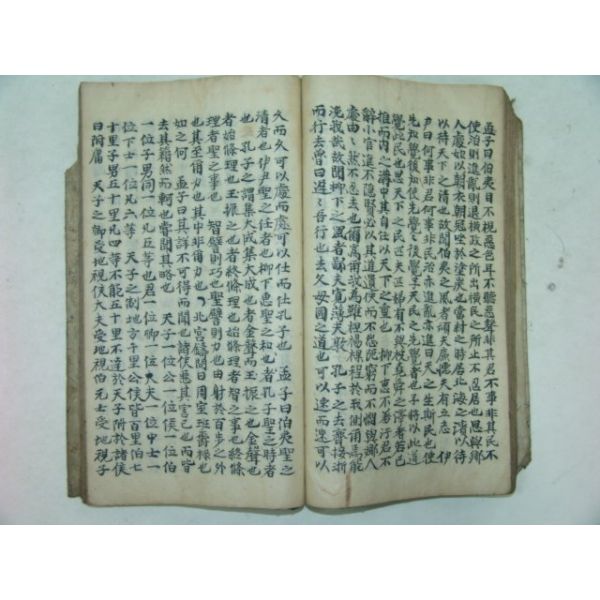 孟子曰伯夷目不視惡色耳不聽惡聲非其君不事非其民不
使治則進亂則退橫政之所出橫民之所止不忍居也思與鄉
人處如以朝衣朝冠坐於塗炭也當紂之時居北海之濱以待
以待天下之清也故聞伯夷之風者頑夫廉懦夫有立志 伊
尹曰何事非君何使非民治亦進亂亦進曰天之生斯民也使
先知覺後知使先覺覺後覺予天民之先覺者也予將以此道
覺此民也思天下之民匹夫匹婦有不與被堯舜之澤者若己
推而內之溝中其自任以天下之重也 柳下惠不羞汙君不
辭小官進不隱賢必以其道遺佚而不怨阨窮而不憫與鄉人
處由由然不忍去也爾爲爾我爲我雖袒裼裸裎於我側爾焉能
浼我哉故聞柳下之風者鄙夫寬薄夫敦 孔子之去齊接淅
而行去魯曰遲遲吾行也去父母國之道也可以速而速可以
久而久可以處而處可以仕而仕孔子也 孟子曰伯夷聖之
清者也伊尹聖之任者也柳下惠聖之和也者孔子聖之時者
也孔子之謂集大成集大成也者金聲而玉振之也金聲也
者始條理也玉振之也者終條理也始條理者智之事也終條
理者聖之事也 智譬則巧也聖譬則力也由射於百步之外
也其至爾力也其中非爾力也 北宮錡問曰周室班爵祿也
如之何 孟子曰其詳不可得而聞也諸侯惡其害己也而皆
去其籍然而軻也嘗聞其略也 天子一位公一位侯一位伯
一位子男同一位凡五等也君一位卿一位大夫一位中士一
位下士一位凡六等 天子之制地方千里公侯皆百里伯七
十里子男五十里凡四等不能五十里不達於天子附於諸侯
曰附庸 天子之卿受地視侯大夫受地視伯元士受地視子